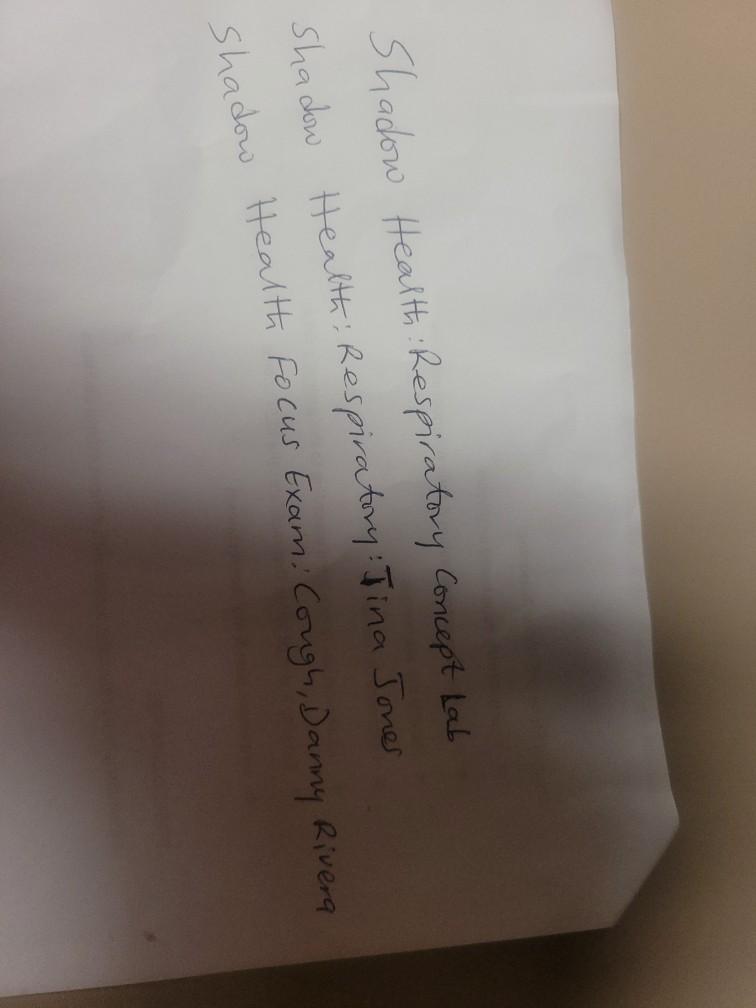 Shadow Health: Respiratory Concept Lab
Shadow Health: Respiratory: Tina Jones
Shadow Health Focus Exam: Cough, Danny Rivera